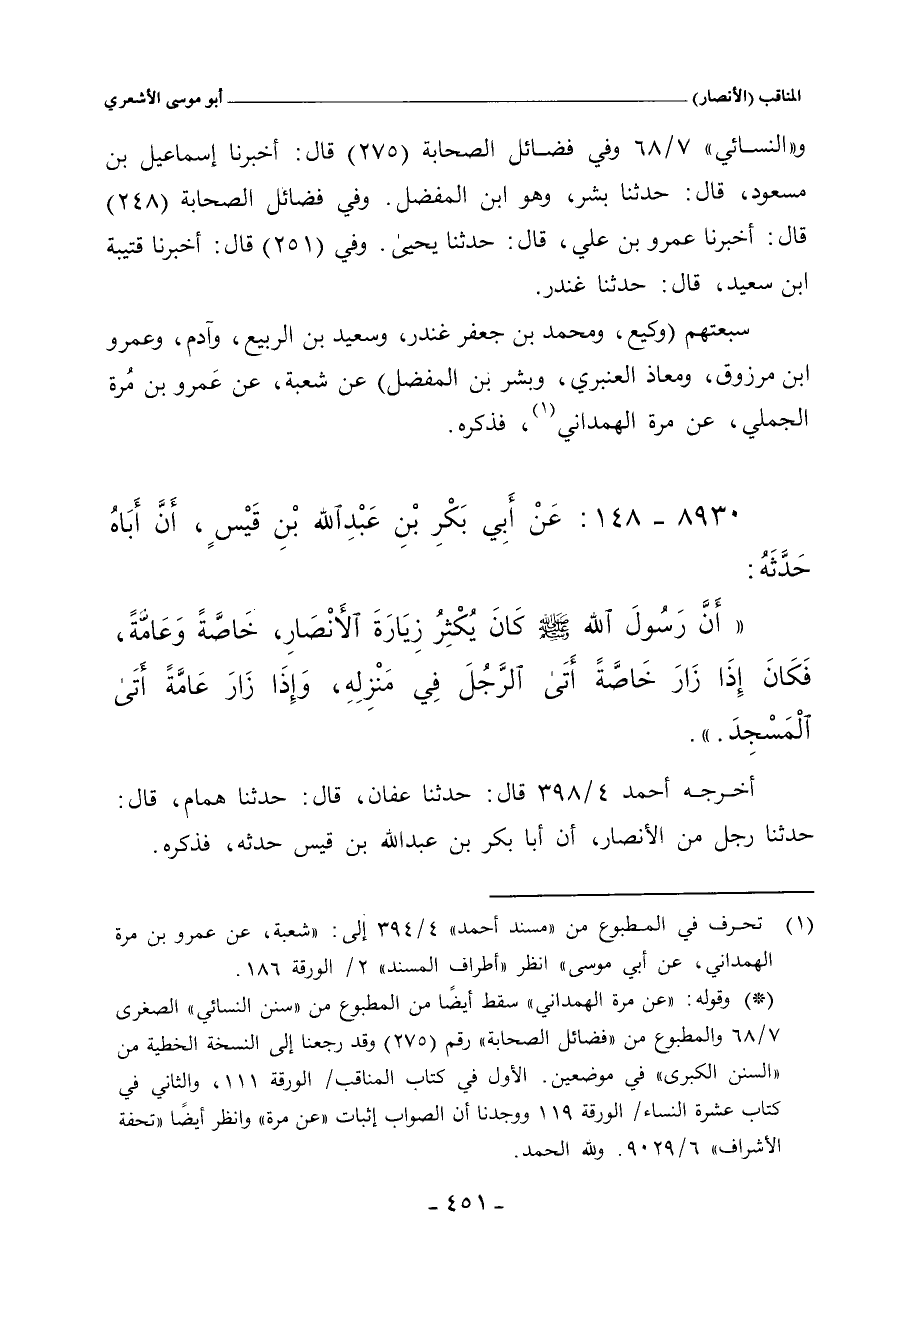 المناقب (الأنصار) ــــــــــــــــــــ أبو موسى الأشعري
و«النسائي» ٦٨/٧ وفي فضائل الصحابة (٢٧٥) قال: أخبرنا إسماعيل بن
مسعود، قال: حدثنا بشر، وهو ابن المفضل. وفي فضائل الصحابة (٢٤٨)
قال: أخبرنا عمرو بن علي، قال: حدثنا يحيىٰ. وفي (٢٥١) قال: أخبرنا قتيبة
ابن سعيد، قال: حدثنا غندر.
سبعتهم (وكيع، ومحمد بن جعفر غندر، وسعيد بن الربيع، وآدم، وعمرو
ابن مرزوق، ومعاذ العنبري، وبشر بن المفضل) عن شعبة، عن عَمرو بن مُرة
الجملي، عن مرة الهمداني(١)، فذكره.
٨٩٣٠ - ١٤٨: عَنْ أَبِي بَكْرِ بْنِ عَبْدِٱلله بْنِ قَيْسٍ، أَنَّ أَبَاهُ
حَدَّثَهُ:
« أَنَّ رَسُولَ ٱلله ﷺ كَانَ يُكْثِرُ زِيَارَةَ ٱلأَنْصَارِ، خَاصَّةً وَعَامَّةً،
فَكَانَ إِذَا زَارَ خَاصَّةً أَتَىٰ ٱلرَّجُلَ فِي مَنْزِلِهِ، وَإِذَا زَارَ عَامَّةً أَتَىٰ
ٱلْمَسْجِدَ.».
أخرجه أحمد ٣٩٨/٤ قال: حدثنا عفان، قال: حدثنا همام، قال:
حدثنا رجل من الأنصار، أن أبا بكر بن عبدالله بن قيس حدثه، فذكره.
(١) تحرف في المطبوع من «مسند أحمد» ٣٩٤/٤ إلى: «شعبة، عن عمرو بن مرة
الهمداني، عن أبي موسى» انظر «أطراف المسند» ٢/ الورقة ١٨٦.
(*) وقوله: «عن مرة الهمداني» سقط أيضًا من المطبوع من «سنن النسائي» الصغرى
٦٨/٧ والمطبوع من «فضائل الصحابة» رقم (٢٧٥) وقد رجعنا إلى النسخة الخطية من
«السنن الكبرى» في موضعين. الأول في كتاب المناقب/ الورقة ١١١، والثاني في
كتاب عشرة النساء/ الورقة ١١٩ ووجدنا أن الصواب إثبات «عن مرة» وانظر أيضًا «تحفة
الأشراف» ٩٠٢٩/٦. ولله الحمد.
- ٤٥١ -